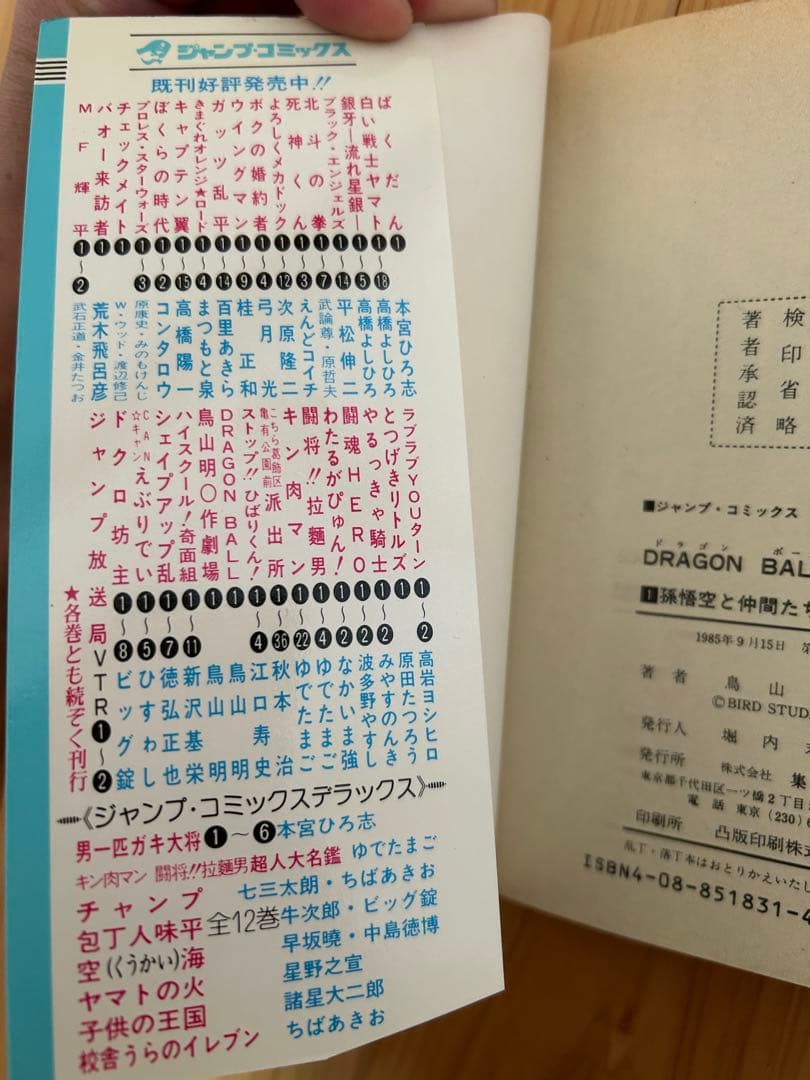 ジャンプ・コミックス
既刊好評発売中!!
ばくだん ❶ 本宮ひろ志
白い戦士ヤマト ❶〜⓲ 高橋よしひろ
銀牙―流れ星銀― ❶〜❺ 高橋よしひろ
ブラック・エンジェルズ ❶〜⓮ 平松伸二
北斗の拳 ❶〜❼ 武論尊・原哲夫
死神くん ❶〜❸ えんどコイチ
よろしくメカドック ❶〜⓬ 次原隆二
ボクの婚約者 ❶〜❹ 弓月光
ウイングマン ❶〜❾ 桂正和
ガッツ乱平 ❶〜⓮ 百里あきら
きまぐれオレンジ★ロード ❶〜❹ まつもと泉
キャプテン翼 ❶〜⓯ 高橋陽一
ぼくらの時代 ❶〜❷ コンタロウ
プロレス・スターウォーズ ❶〜❸ 原康史・みのもけんじ
チェックメイト ❶ W・ウッド・渡辺修己
バオー来訪者 ❶ 荒木飛呂彦
MF輝平 ❶〜❷ 武石正道・金井たつお
ラブラブYOUターン ❶〜❷ 高岩ヨシヒロ
とつげきリトルズ ❶ 原田たつろう
やるっきゃ騎士 ❶〜❷ みやすのんき
闘魂HERO ❶〜❷ 波多野やすし
わたるがぴゅん! ❶〜❷ なかいま強
闘将!!拉麵男 ❶〜❹ ゆでたまご
キン肉マン ❶〜㉒ ゆでたまご
こちら葛飾区亀有公園前派出所 ❶〜㊱ 秋本治
ストップ!!ひばりくん! ❶〜❹ 江口寿史
DRAGON BALL ❶ 鳥山明
鳥山明○作劇場 ❶ 鳥山明
ハイスクール!奇面組 ❶〜⓫ 新沢基栄
シェイプアップ乱 ❶〜❼ 徳弘正也
CAN☆キャンえぶりでい ❶〜❺ ひすゎし
ドクロ坊主 ❶〜❽ ビッグ錠
ジャンプ放送局VTR❶〜❷
★各巻とも続ぞく刊行
《ジャンプ・コミックスデラックス》
男一匹ガキ大将❶〜❻本宮ひろ志
キン肉マン 闘将!!拉麵男 超人大名鑑 ゆでたまご
チャンプ 七三太朗・ちばあきお
包丁人味平 全12巻 牛次郎・ビッグ錠
空(くうかい)海 早坂暁・中島徳博
ヤマトの火 星野之宣
子供の王国 諸星大二郎
校舎うらのイレブン ちばあきお
検印省略
著者承認済
■ジャンプ・コミックス
ドラゴン ボー
DRAGON BAL
❶孫悟空と仲間た
1985年9月15日 第
著者 鳥山
©BIRD STUD
発行人 堀内
発行所 株式会社 集
東京都千代田区一ツ橋2丁目
電話 東京(230)6
印刷所 凸版印刷株
乱丁・落丁本はおとりかえいたし
ISBN4-08-851831-4